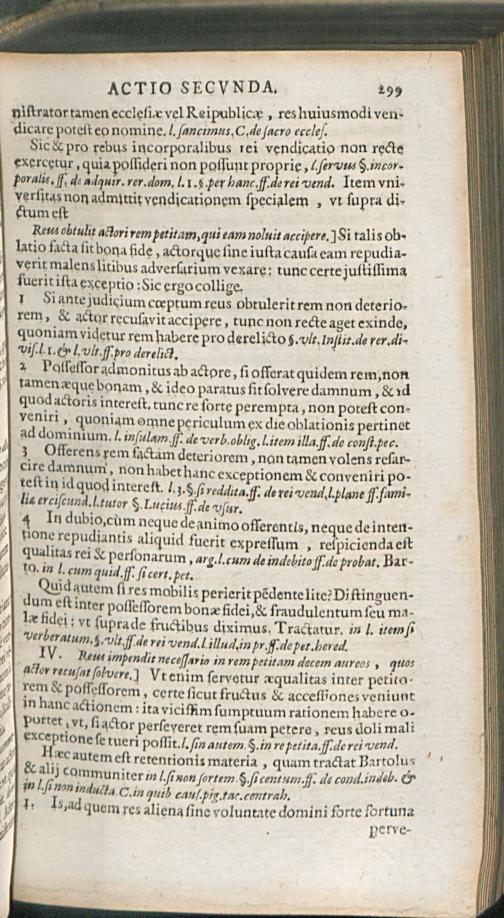 ACTIO SECVNDA. 299
nistrator tamen ecclesiæ vel Reipublicæ, res huiusmodi ven-
dicare potest eo nomine. l. sancimus, C. de sacro eccles.
Sic & pro rebus incorporalibus rei vendicatio non recte
exercetur, quia possideri non possunt proprie, l. servus §. incor-
poralis. ff. de adquir. rer. dom. l. 1. §. per hanc. ff. de rei vend. Item vni-
versitas non admittit vendicationem specialem, vt supra di-
ctum est
Reus obtulit actori rem petitam, qui eam noluit accipere.] Si talis ob-
latio facta sit bona fide, actorque sine iusta causa eam repudia-
verit malens litibus adversarium vexare; tunc certe justissima
fuerit ista exceptio: Sic ergo collige.
1 Si ante judicium cœptum reus obtulerit rem non deterio-
rem, & actor recusavit accipere, tunc non recte aget exinde,
quoniam videtur rem habere pro derelicto §. vlt. Instit. de rer. di-
vis. l. 1. & l. vlt. ff. pro derelict.
2 Possessor admonitus ab actore, si offerat quidem rem, non
tamen æque bonam, & ideo paratus sit solvere damnum, & id
quod actoris interest, tunc re forte perempta, non potest con-
veniri, quoniam omne periculum ex die oblationis pertinet
ad dominium. l. insulam. ff. de verb. oblig. l. item illa. ff. de const. pec.
3 Offerens rem factam deteriorem, non tamen volens resar-
cire damnum, non habet hanc exceptionem & conveniri po-
test in id quod interest. l. 3. §. si reddita. ff. de rei vend, l. plane ff. fami-
liæ erciscund. l. tutor §. Lucius. ff. de vsur.
4 In dubio, cum neque de animo offerentis, neque de inten-
tione repudiantis aliquid fuerit expressum, respicienda est
qualitas rei & personarum, arg. l. cum de indebito ff. de probat. Bar-
to. in l. cum quid. ff. si cert. pet.
Quid autem si res mobilis perierit pēdente lite? Distinguen-
dum est inter possessorem bonæ fidei, & fraudulentum seu ma-
læ fidei: vt supra de fructibus diximus. Tractatur. in l. item si
verberatum. §. vlt. ff. de rei vend. l. illud, in pr. ff. de pet. hered.
IV. Reus impendit necessario in rem petitam decem aureos, quos
actor recusat solvere.] Vt enim servetur æqualitas inter petito-
rem & possessorem, certe sicut fructus & accessiones veniunt
in hanc actionem: ita vicissim sumptuum rationem habere o-
portet, vt, si actor perseveret rem suam petere, reus doli mali
exceptione se tueri possit. l. sin autem. §. in re petita. ff. de rei vend.
Hæc autem est retentionis materia, quam tractat Bartolus
& alij communiter in l. si non sortem. §. si centum. ff. de cond. indeb. &
in l. si non inducta. C. in quib caus. pig. tac. contrah.
1. Is, ad quem res aliena sine voluntate domini forte fortuna
perve-